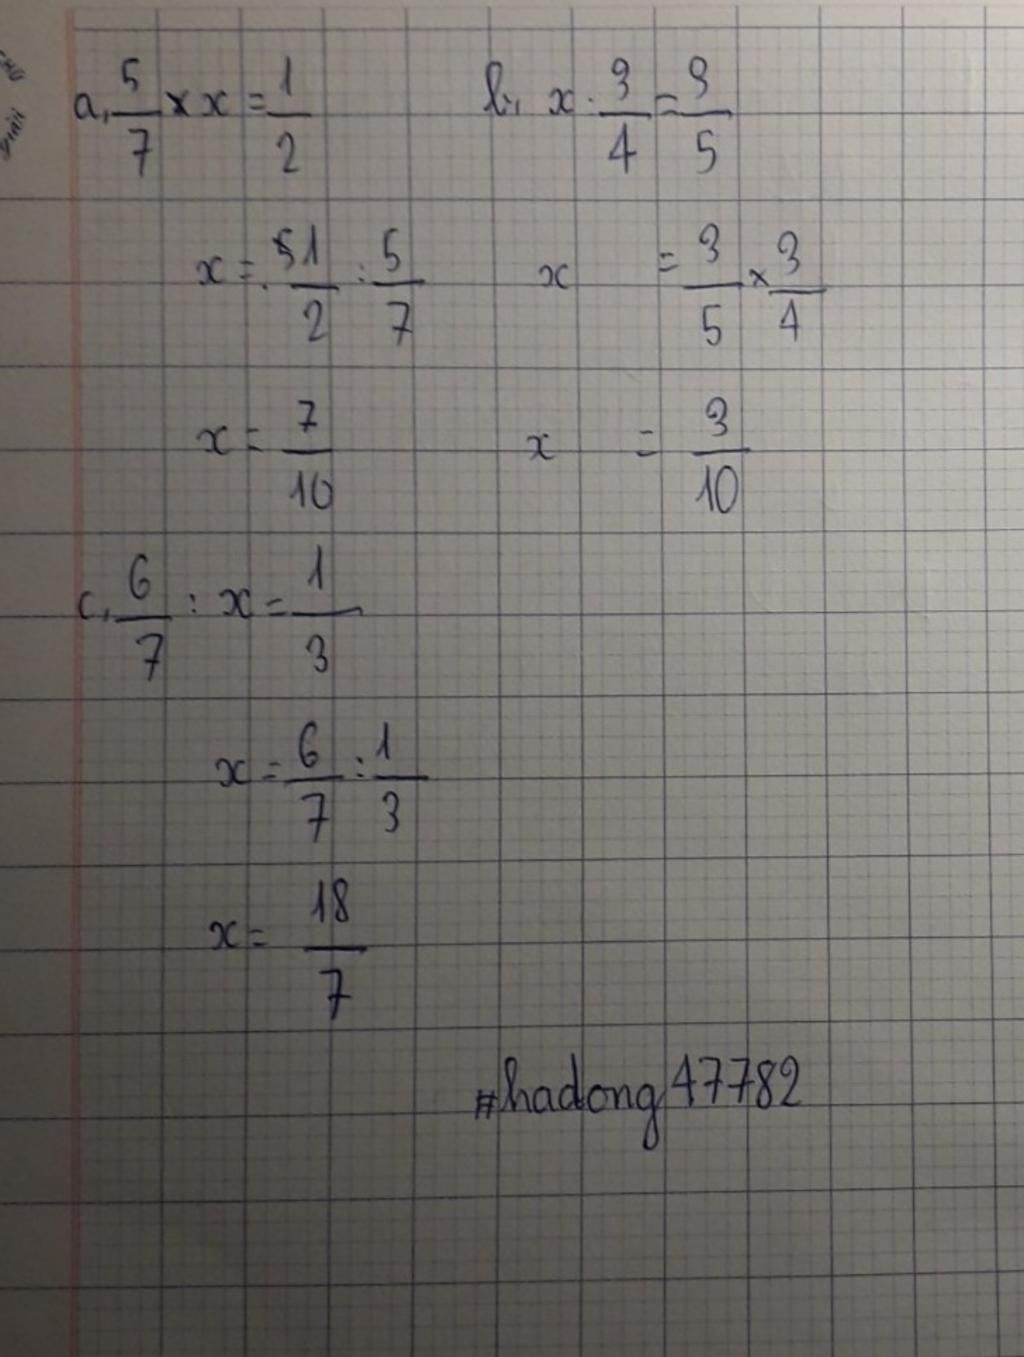 a, 5/7 × x = 1/2
x = 1/2 : 5/7
x = 7/10
b, x : 3/4 = 3/5
x = 3/5 × 3/4
x = 3/10
c, 6/7 : x = 1/3
x = 6/7 : 1/3
x = 18/7
#hadong47782